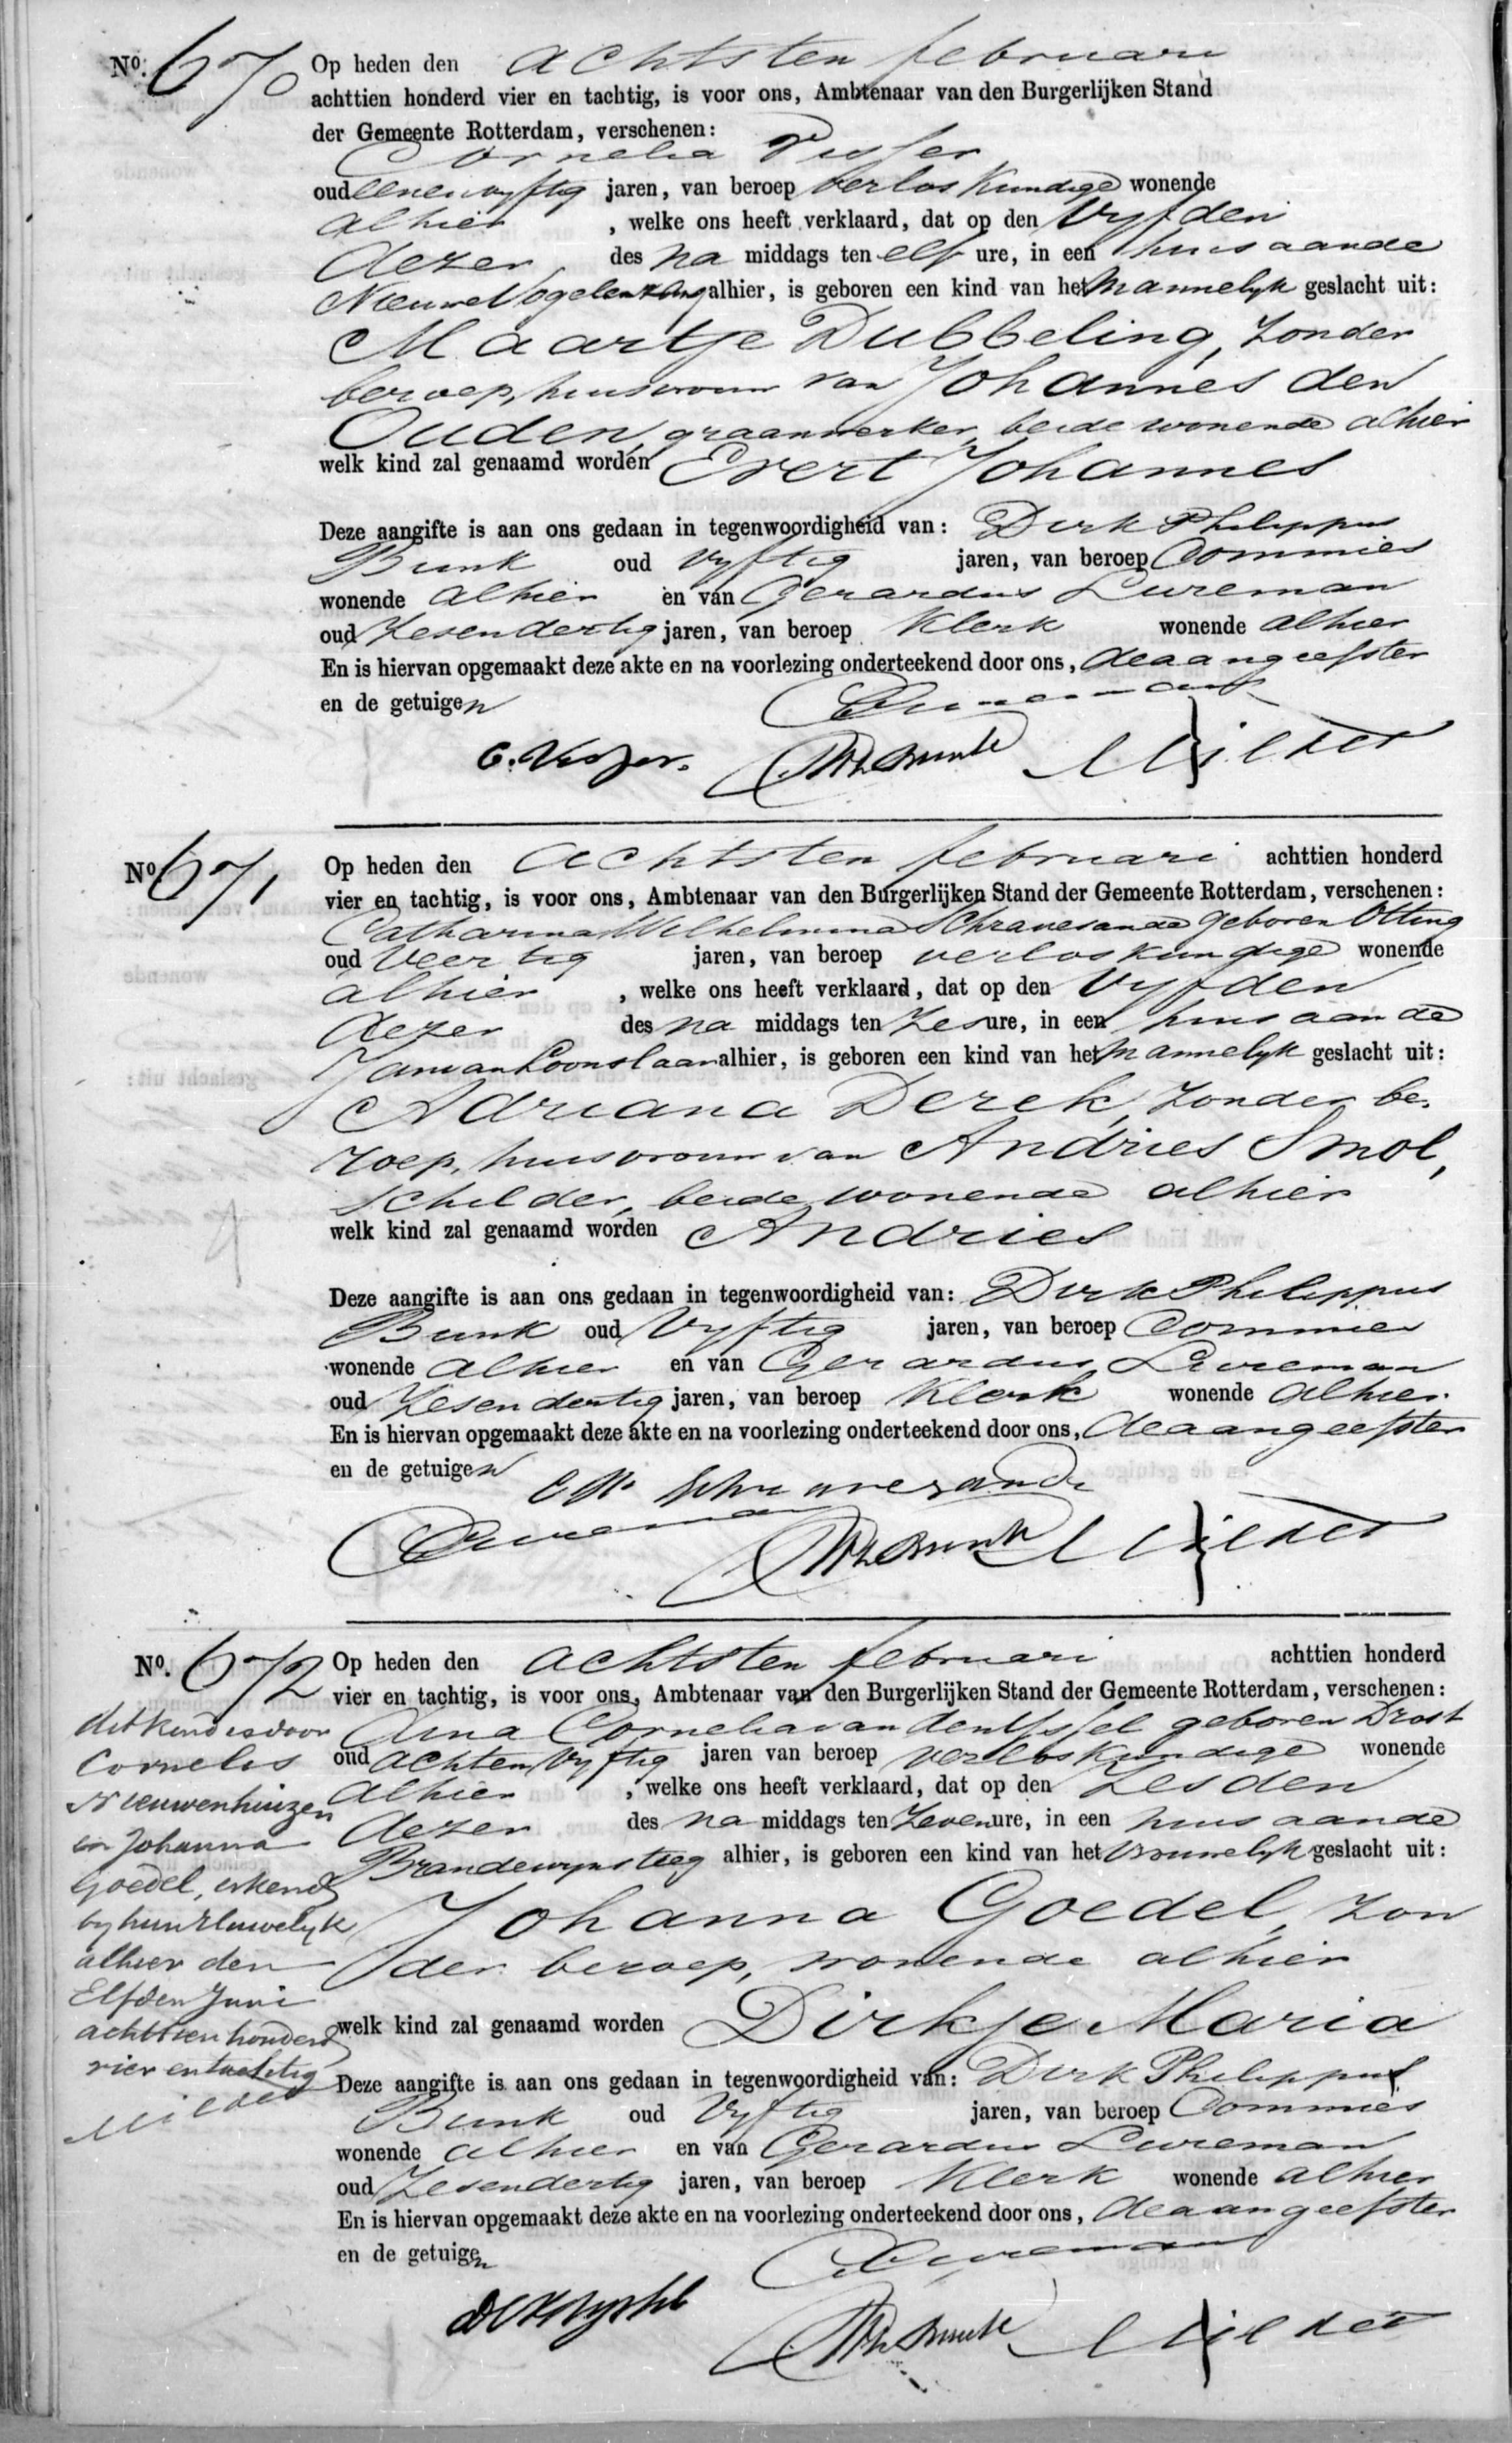 No. 670 Op heden den achtsten februari
achttien honderd vier en tachtig, is voor ons, Ambtenaar van den Burgerlijken Stand
der Gemeente Rotterdam, verschenen:
Cornelia Visser
oud eenenvyftig jaren, van beroep verloskundige wonende
alhier , welke ons heeft verklaard, dat op den vyfden
dezer des na middags ten elf ure, in een huis aan de
Nieuwe Vogelenzang alhier, is geboren een kind van het mannelyk geslacht uit:
Maartje Dubbeling, zonder
beroep, huisvrouw van Johannes den
Ouden, graanwerker, beide wonende alhier
welk kind zal genaamd worden Evert Johannes
Deze aangifte is aan ons gedaan in tegenwoordigheid van: Dirk Philippus
Bunk oud vyftig jaren, van beroep Commies
wonende alhier en van Gerardus Lureman
oud zesendertig jaren, van beroep Klerk wonende alhier
En is hiervan opgemaakt deze akte en na voorlezing onderteekend door ons, de aangeefster
en de getuigen Lureman
C. Visser. DPh Bunk Milders
No. 671 Op heden den achtsten februari achttien honderd
vier en tachtig, is voor ons, Ambtenaar van den Burgerlijken Stand der Gemeente Rotterdam, verschenen:
Catharina Wilhelmina Schravesande geboren Otting
oud veertig jaren, van beroep verloskundige wonende
alhier , welke ons heeft verklaard, dat op den vyfden
dezer des na middags ten zes ure, in een huis aan de
Jan van Loonslaan alhier, is geboren een kind van het mannelyk geslacht uit:
Adriana Derek, zonder be-
roep, huisvrouw van Andries Smol,
schilder, beide wonende alhier
welk kind zal genaamd worden Andries
Deze aangifte is aan ons gedaan in tegenwoordigheid van: Dirk Philippus
Bunk oud vyftig jaren, van beroep Commies
wonende alhier en van Gerardus Lureman
oud zesendertig jaren, van beroep Klerk wonende alhier.
En is hiervan opgemaakt deze akte en na voorlezing onderteekend door ons, de aangeefster
en de getuigen
CW Schravesande
Lureman DPh Bunk Milders
No. 672 Op heden den achtsten februari achttien honderd
vier en tachtig, is voor ons, Ambtenaar van den Burgerlijken Stand der Gemeente Rotterdam, verschenen:
Anna Cornelia van den Yssel geboren Drost
oud achtenvyftig jaren van beroep verloskundige wonende
alhier , welke ons heeft verklaard, dat op den zesden
dezer des na middags ten zeven ure, in een huis aan de
Brandewynsteeg alhier, is geboren een kind van het vrouwelyk geslacht uit:
Johanna Goedel, zon
der beroep, wonende alhier
welk kind zal genaamd worden Dirkje Maria
Deze aangifte is aan ons gedaan in tegenwoordigheid van: Dirk Philippus
Bunk oud vyftig jaren, van beroep Commies
wonende alhier en van Gerardus Lureman
oud zesendertig jaren, van beroep Klerk wonende alhier
En is hiervan opgemaakt deze akte en na voorlezing onderteekend door ons, de aangeefster
en de getuigen Lureman
DPh Bunk Milders
dit kind is door
Cornelis
Nieuwenhuizen
en Johanna
Goedel, erkend
by hun huwelyk
alhier den
Elfden Juni
achttien honderd
vier en tachtig
Milders